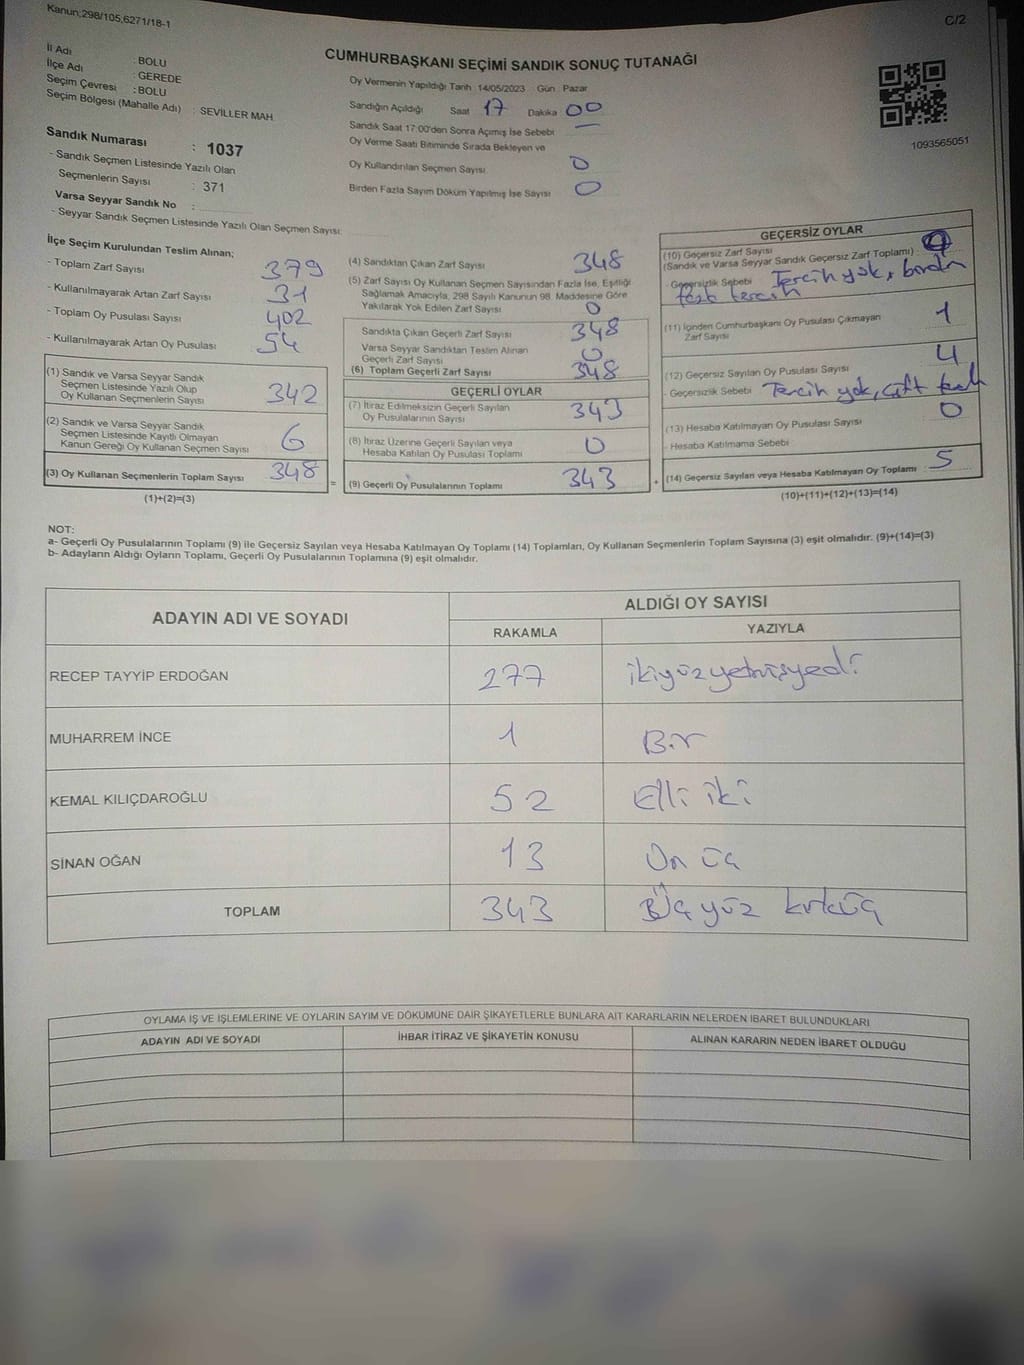 Kanun;298/105,6271/18-1
C/2
CUMHURBAŞKANI SEÇİMİ SANDIK SONUÇ TUTANAĞI
İl Adı : BOLU
İlçe Adı : GEREDE
Seçim Çevresi : BOLU
Seçim Bölgesi (Mahalle Adı) : SEVİLLER MAH.
Sandık Numarası : 1037
- Sandık Seçmen Listesinde Yazılı Olan
Seçmenlerin Sayısı : 371
Varsa Seyyar Sandık No :
- Seyyar Sandık Seçmen Listesinde Yazılı Olan Seçmen Sayısı:
Oy Vermenin Yapıldığı Tarih 14/05/2023 Gün Pazar
Sandığın Açıldığı Saat 17 Dakika 00
Sandık Saat 17:00'den Sonra Açımış İse Sebebi —
Oy Verme Saati Bitiminde Sırada Bekleyen ve
Oy Kullandırılan Seçmen Sayısı 0
Birden Fazla Sayım Döküm Yapılmış İse Sayısı 0
1093565051
İlçe Seçim Kurulundan Teslim Alınan;
- Toplam Zarf Sayısı 379
- Kullanılmayarak Artan Zarf Sayısı 31
- Toplam Oy Pusulası Sayısı 402
- Kullanılmayarak Artan Oy Pusulası 54
(1) Sandık ve Varsa Seyyar Sandık
Seçmen Listesinde Yazılı Olup
Oy Kullanan Seçmenlerin Sayısı 342
(2) Sandık ve Varsa Seyyar Sandık
Seçmen Listesinde Kayıtlı Olmayan
Kanun Gereği Oy Kullanan Seçmen Sayısı 6
(3) Oy Kullanan Seçmenlerin Toplam Sayısı 348
(1)+(2)=(3)
=
(4) Sandıktan Çıkan Zarf Sayısı 348
(5) Zarf Sayısı Oy Kullanan Seçmen Sayısından Fazla İse, Eşitliği
Sağlamak Amacıyla, 298 Sayılı Kanunun 98. Maddesine Göre
Yakılarak Yok Edilen Zarf Sayısı 0
Sandıkta Çıkan Geçerli Zarf Sayısı 348
Varsa Seyyar Sandıktan Teslim Alınan
Geçerli Zarf Sayısı 0
(6) Toplam Geçerli Zarf Sayısı 348
GEÇERLİ OYLAR
(7) İtiraz Edilmeksizin Geçerli Sayılan
Oy Pusulalarının Sayısı 343
(8) İtiraz Üzerine Geçerli Sayılan veya
Hesaba Katılan Oy Pusulası Toplamı 0
(9) Geçerli Oy Pusulalarının Toplamı 343
+
GEÇERSİZ OYLAR
(10) Geçersiz Zarf Sayısı
(Sandık ve Varsa Seyyar Sandık Geçersiz Zarf Toplamı) :
- Geçersizlik Sebebi Tercih yok, birden
fazla tercih
(11) İçinden Cumhurbaşkanı Oy Pusulası Çıkmayan
Zarf Sayısı 1
(12) Geçersiz Sayılan Oy Pusulası Sayısı 4
- Geçersizlik Sebebi Tercih yok, çift tercih
(13) Hesaba Katılmayan Oy Pusulası Sayısı 0
- Hesaba Katılmama Sebebi
(14) Geçersiz Sayılan veya Hesaba Katılmayan Oy Toplamı 5
(10)+(11)+(12)+(13)=(14)
NOT:
a- Geçerli Oy Pusulalarının Toplamı (9) ile Geçersiz Sayılan veya Hesaba Katılmayan Oy Toplamı (14) Toplamları, Oy Kullanan Seçmenlerin Toplam Sayısına (3) eşit olmalıdır. (9)+(14)=(3)
b- Adayların Aldığı Oyların Toplamı, Geçerli Oy Pusulalarının Toplamına (9) eşit olmalıdır.
ADAYIN ADI VE SOYADI ALDIĞI OY SAYISI
RAKAMLA YAZIYLA
RECEP TAYYİP ERDOĞAN 277 ikiyüzyetmişyedi
MUHARREM İNCE 1 Bir
KEMAL KILIÇDAROĞLU 52 Elli iki
SİNAN OĞAN 13 On üç
TOPLAM 343 Üçyüz kırküç
OYLAMA İŞ VE İŞLEMLERİNE VE OYLARIN SAYIM VE DÖKÜMÜNE DAİR ŞİKAYETLERLE BUNLARA AİT KARARLARIN NELERDEN İBARET BULUNDUKLARI
ADAYIN ADI VE SOYADI İHBAR İTİRAZ VE ŞİKAYETİN KONUSU ALINAN KARARIN NEDEN İBARET OLDUĞU